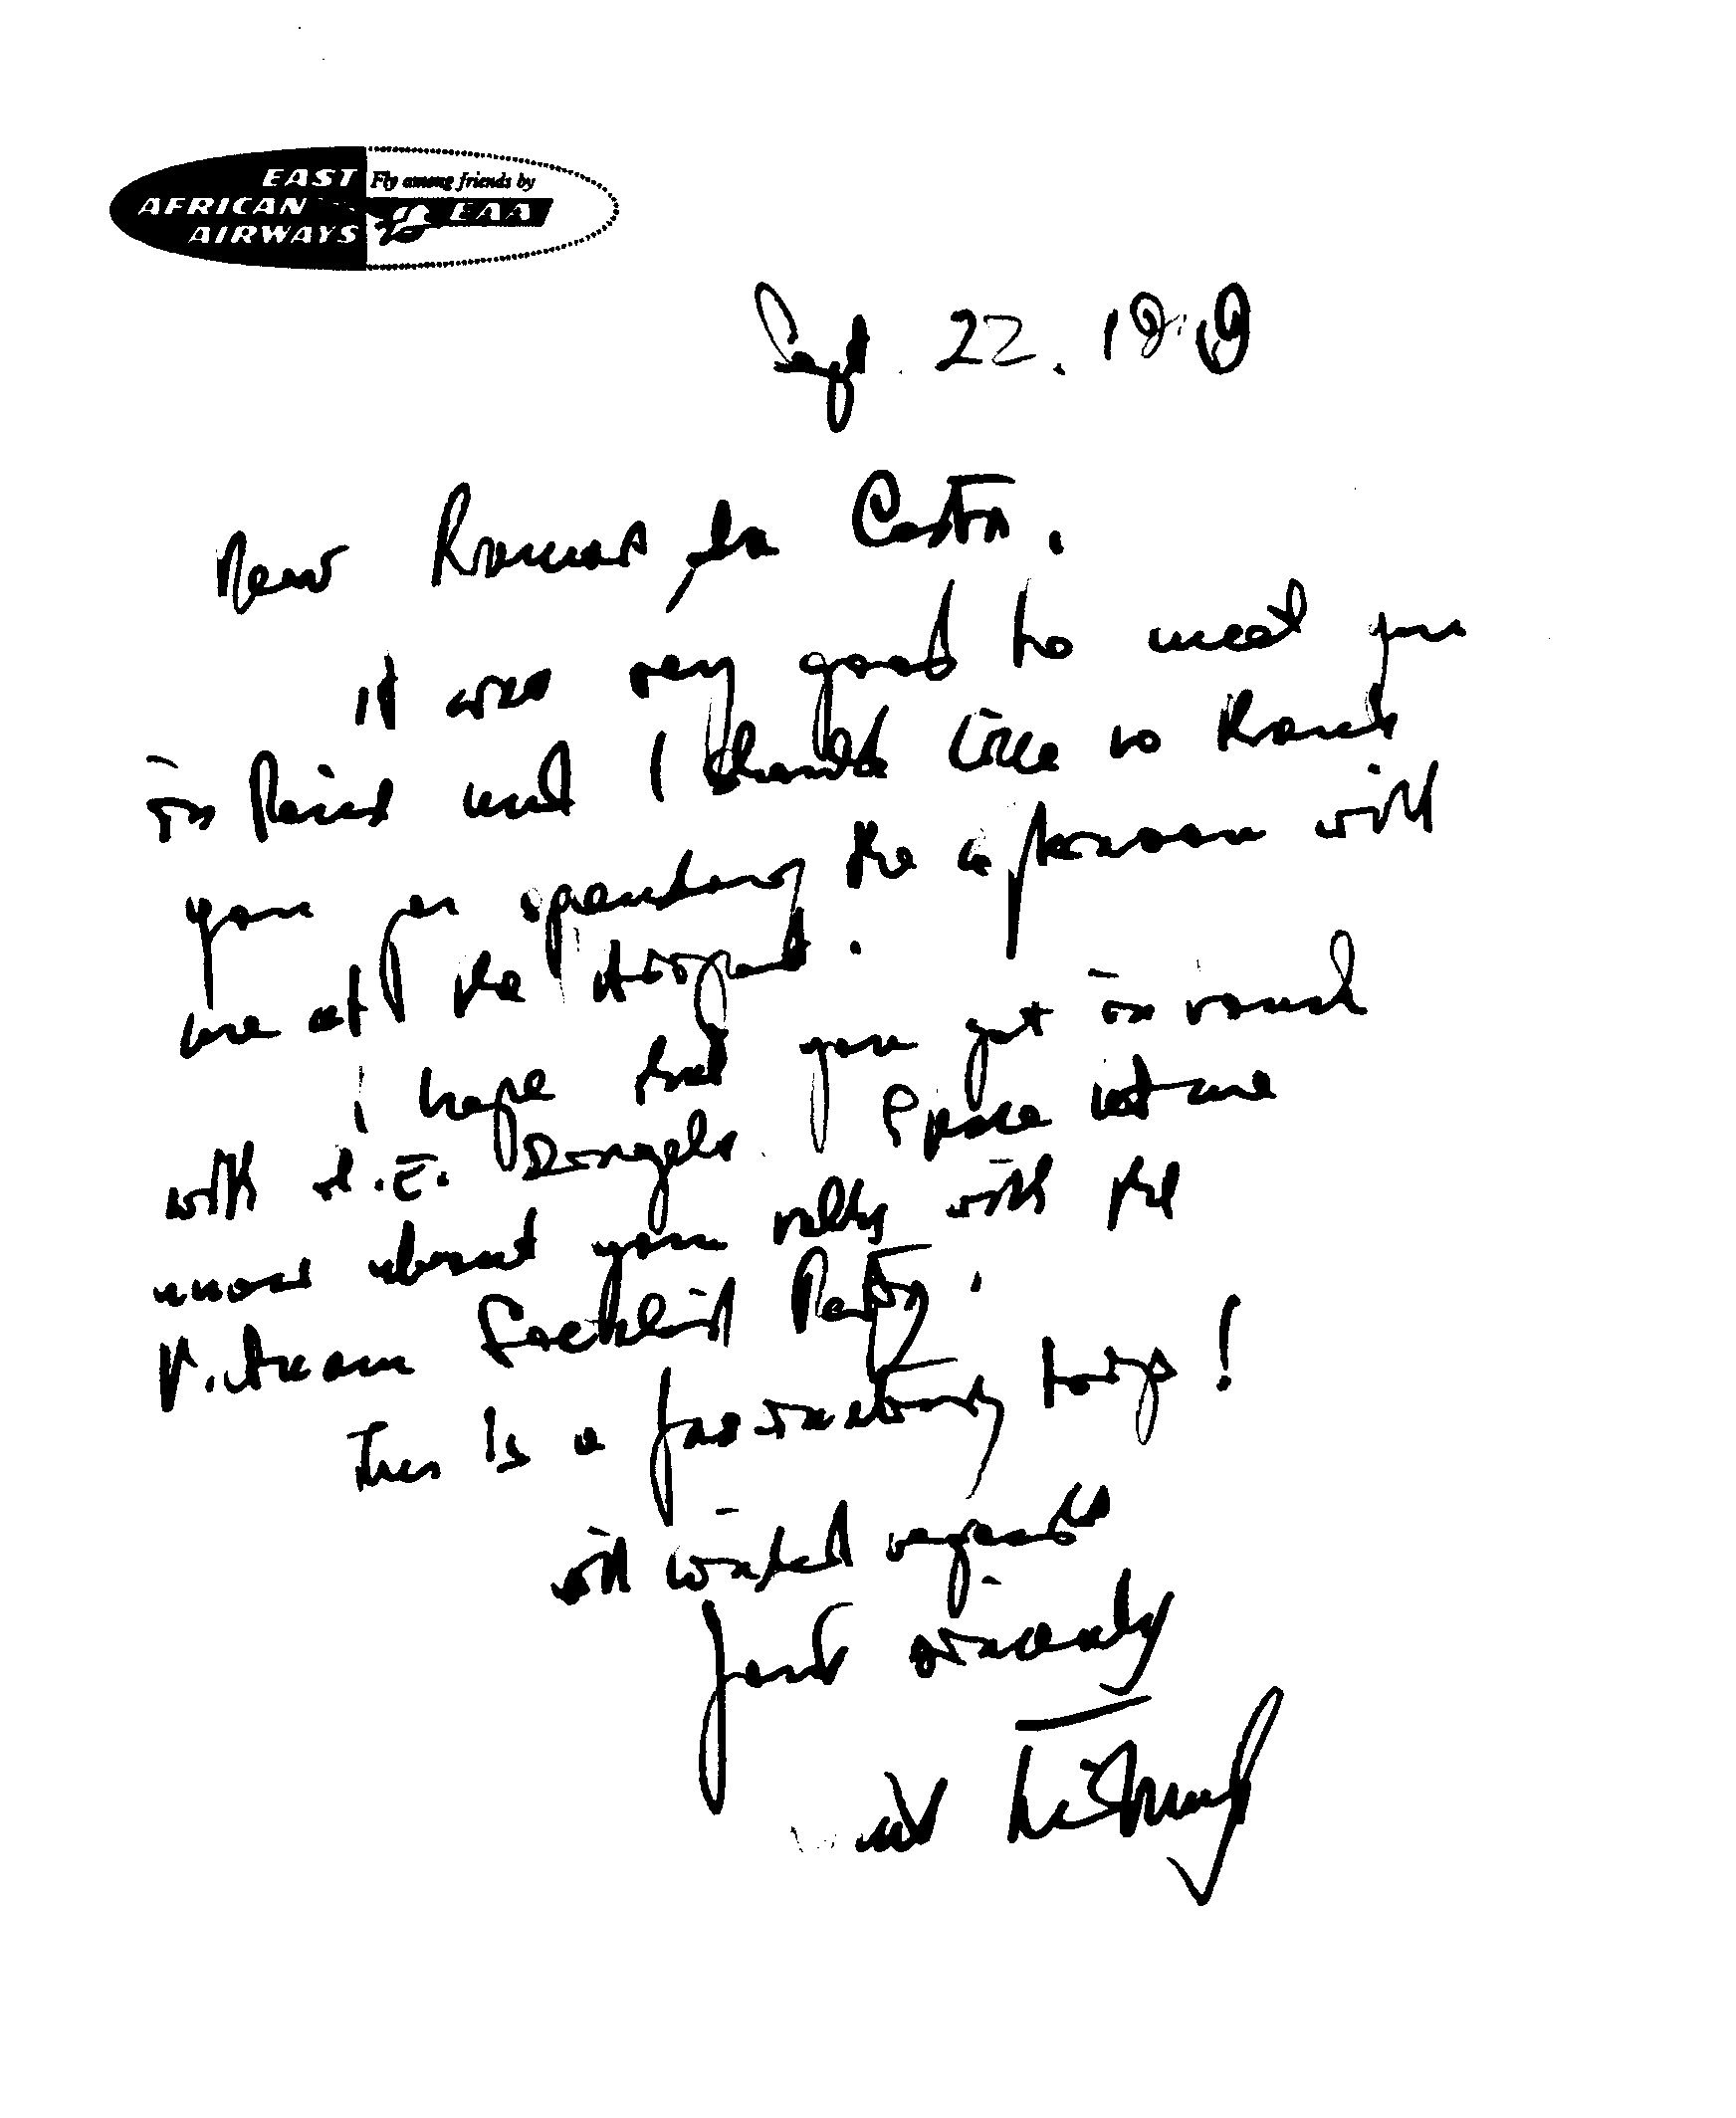 EAST AFRICAN AIRWAYS
Fly among friends by EAA
Sept. 22. 19
Dear Thomas da Costa.
it was very good to meet you
in Paris and I should like to thank
you for spending the afternoon with
me at the Airport.
I hope that you get in touch
with Please let me
know about your talks with the
Vietnam Socialist Party.
This is a fascinating trip!
with kindest regards
yours sincerely